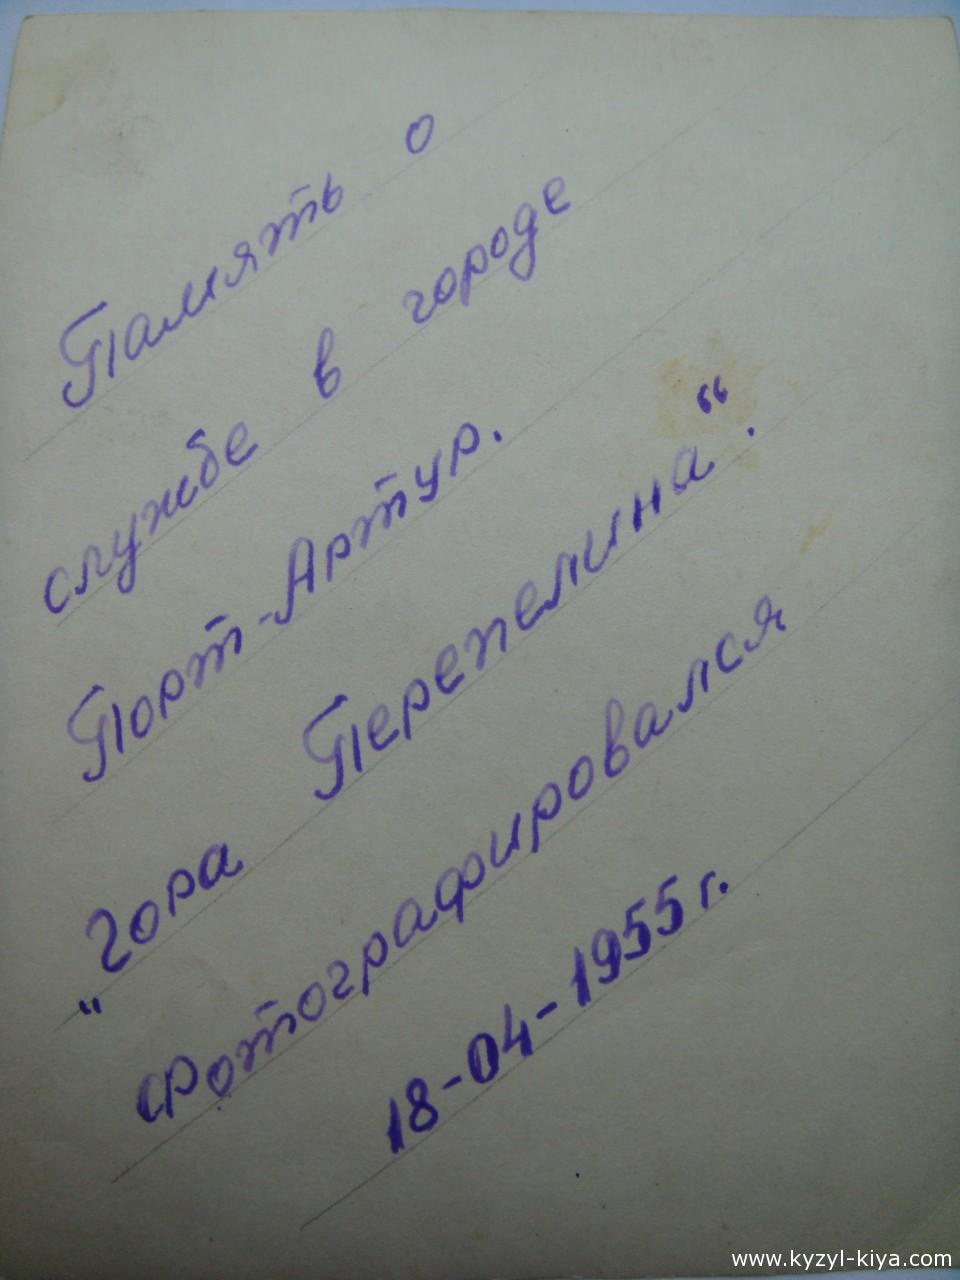 Память о
службе в городе
Порт-Артур.
"Гора Перепелина".
Фотографировался
18-04-1955 г.
www.kyzyl-kiya.com